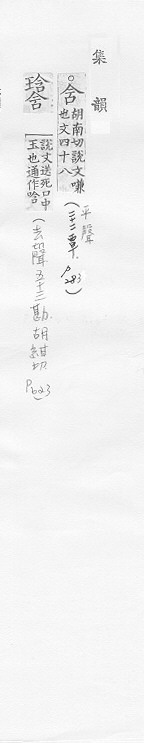 集韻
○含 胡南切說文嗛
也文四十八
平聲
(二十二覃. P283)
琀含 說文送死口中
玉也通作唅
(去聲五十三勘. 胡紺切 P623)